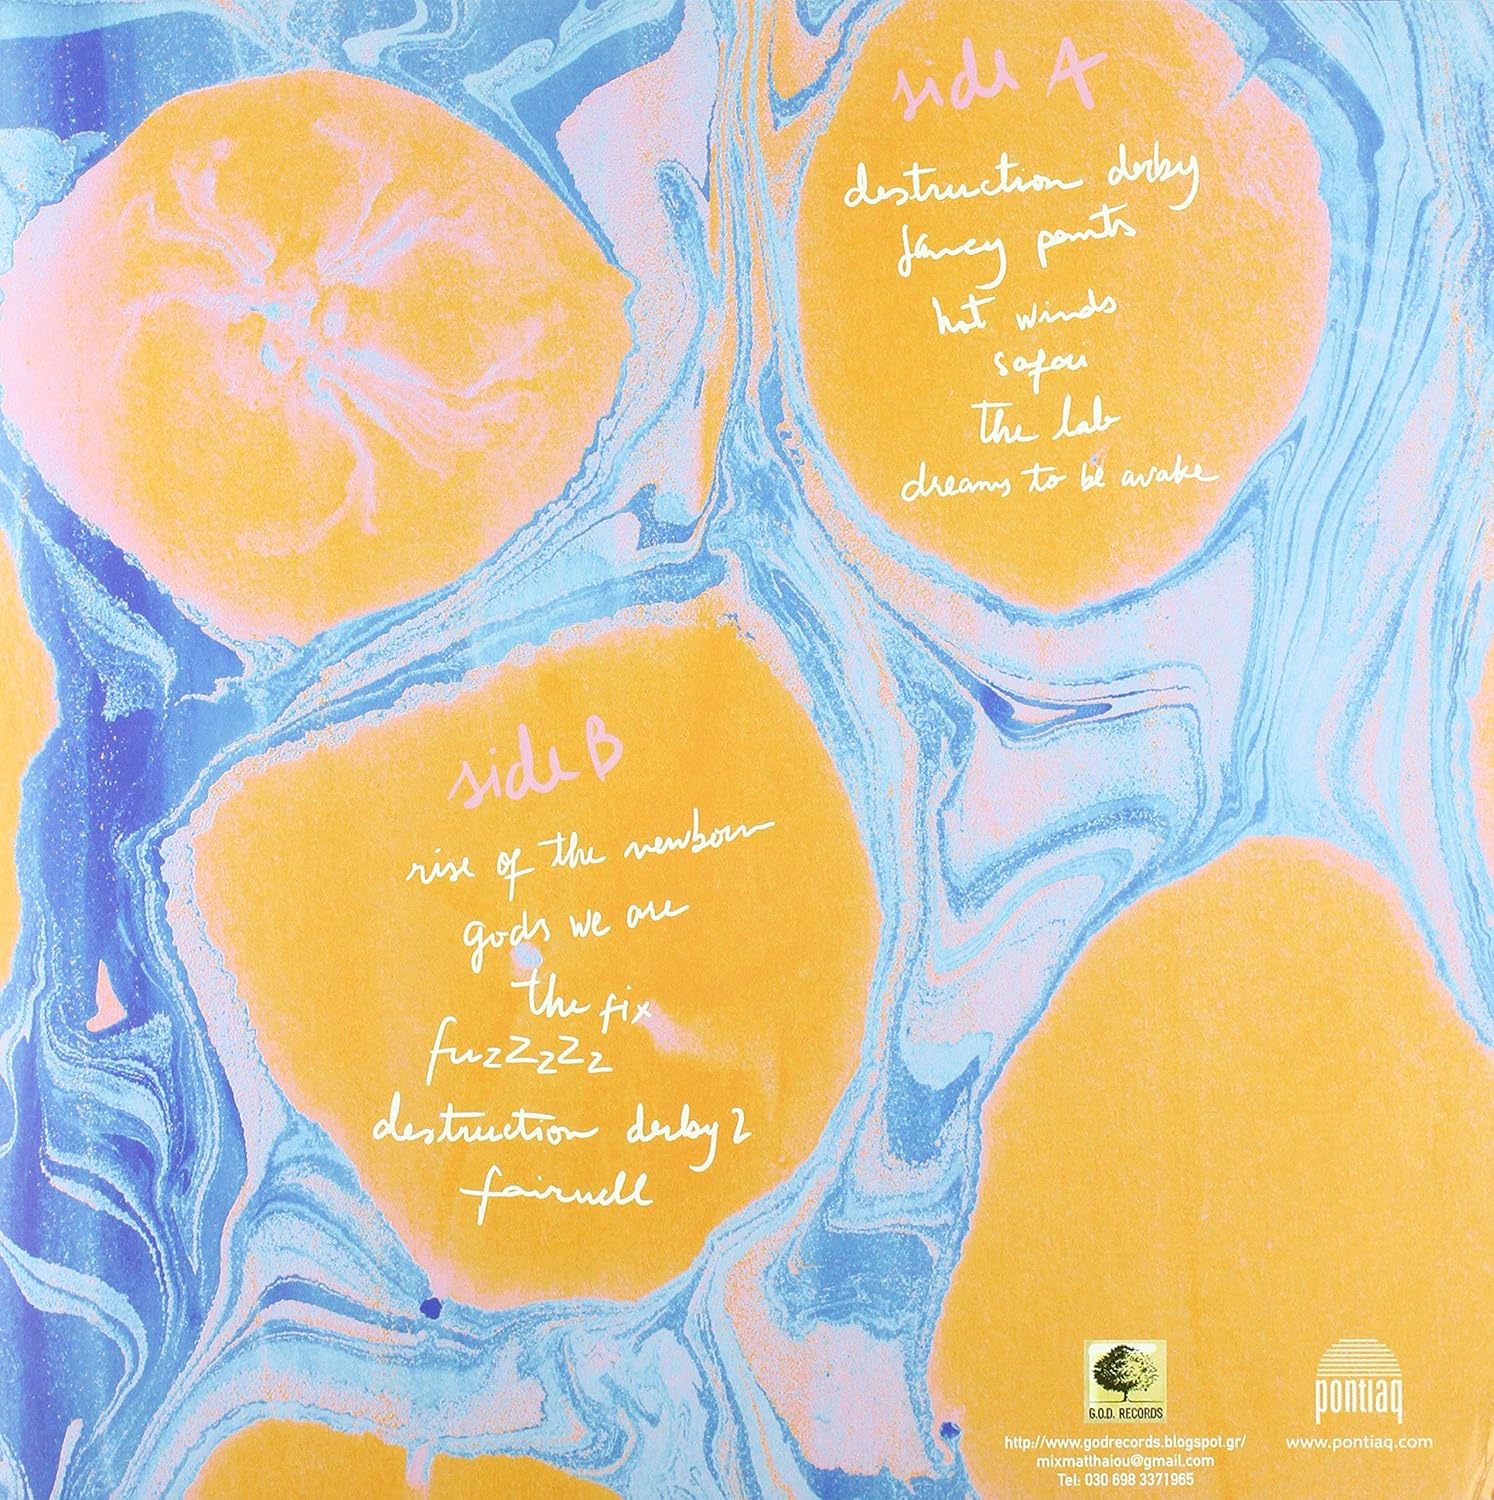 side A
destruction derby
fancy pants
hot winds
safari
the lab
dreams to be awake
side B
rise of the newborn
gods we are
the fix
fuzZzZz
destruction derby 2
fairwell
G.O.D. RECORDS
http://www.godrecords.blogspot.gr/
mixmatthaiou@gmail.com
Tel: 030 698 3371965
pontiaq
www.pontiaq.com